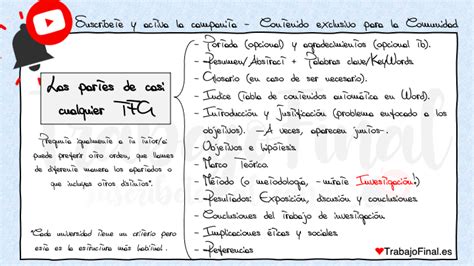 Suscríbete y activa la campanita - Contenido exclusivo para la Comunidad
Las partes de casi
cualquier TFG
Pregunta igualmente a tu tutor/a:
puede preferir otro orden, que llames
de diferente manera los apartados o
que incluyas otros distintos*.
*Cada universidad tiene un criterio pero
esta es la estructura más habitual.
- Portada (opcional) y agradecimientos (opcional tb).
- Resumen/Abstract + Palabras clave/KeyWords
- Glosario (en caso de ser necesario).
- Índice (tabla de contenidos automática en Word).
- Introducción y Justificación (problema enfocado a los
objetivos). -A veces, aparecen juntos-.
- Objetivos e hipótesis.
- Marco Teórico.
- Método (o metodología, -mírate Investigación!)
- Resultados: Exposición, discusión y conclusiones
- Conclusiones del trabajo de investigación
- Implicaciones éticas y sociales
- Referencias
TrabajoFinal.es